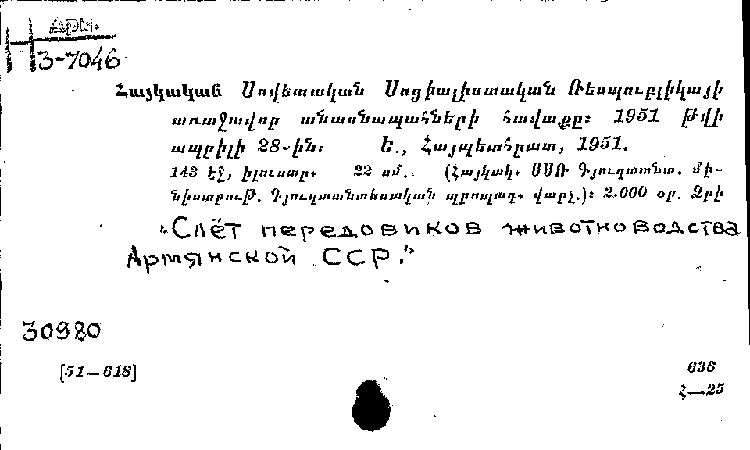 АРМ.
Н
3-7046
Հայկական Սովետական Սոցիալիստական Ռեսպուբլիկայի
առաջավոր անասնապահների հավաքը։ 1951 թվի
ապրիլի 28-ին։ Ե., Հայպետհրատ, 1951.
143 էջ, իլյուստր. 22 սմ. (Հայկակ. ՍՍՌ Գյուղատնտ. մի-
նիստրութ. Գյուղատնտեսական պրոպագ. վարչ.)։ 2.000 օր. Ձրի
"Слёт передовиков животноводства
Армянской ССР."
30980
[51—618]
636
Հ—25